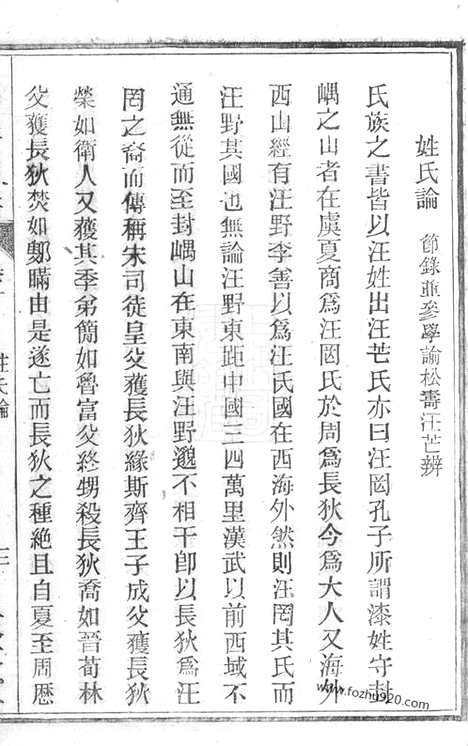 姓氏論 節錄並參學諭松壽汪芒辨
氏族之書皆以汪姓出汪芒氏亦曰汪罔孔子所謂漆姓守封
嵎之山者在虞夏商爲汪罔氏於周爲長狄今爲大人又海外
西山經有汪野李善以爲汪氏國在西海外然則汪罔其氏而
汪野其國也無論汪野東距中國三四萬里漢武以前西域不
通無從而至封嵎山在東南與汪野邈不相干卽以長狄爲汪
罔之裔而傳稱宋司徒皇父獲長狄緣斯齊王子成父獲長狄
榮如衛人又獲其季弟簡如魯富父終甥殺長狄喬如晉荀林
父獲長狄焚如鄋瞞由是遂亡而長狄之種絕且自夏至周歷
姓氏論
www.fozhu920.com